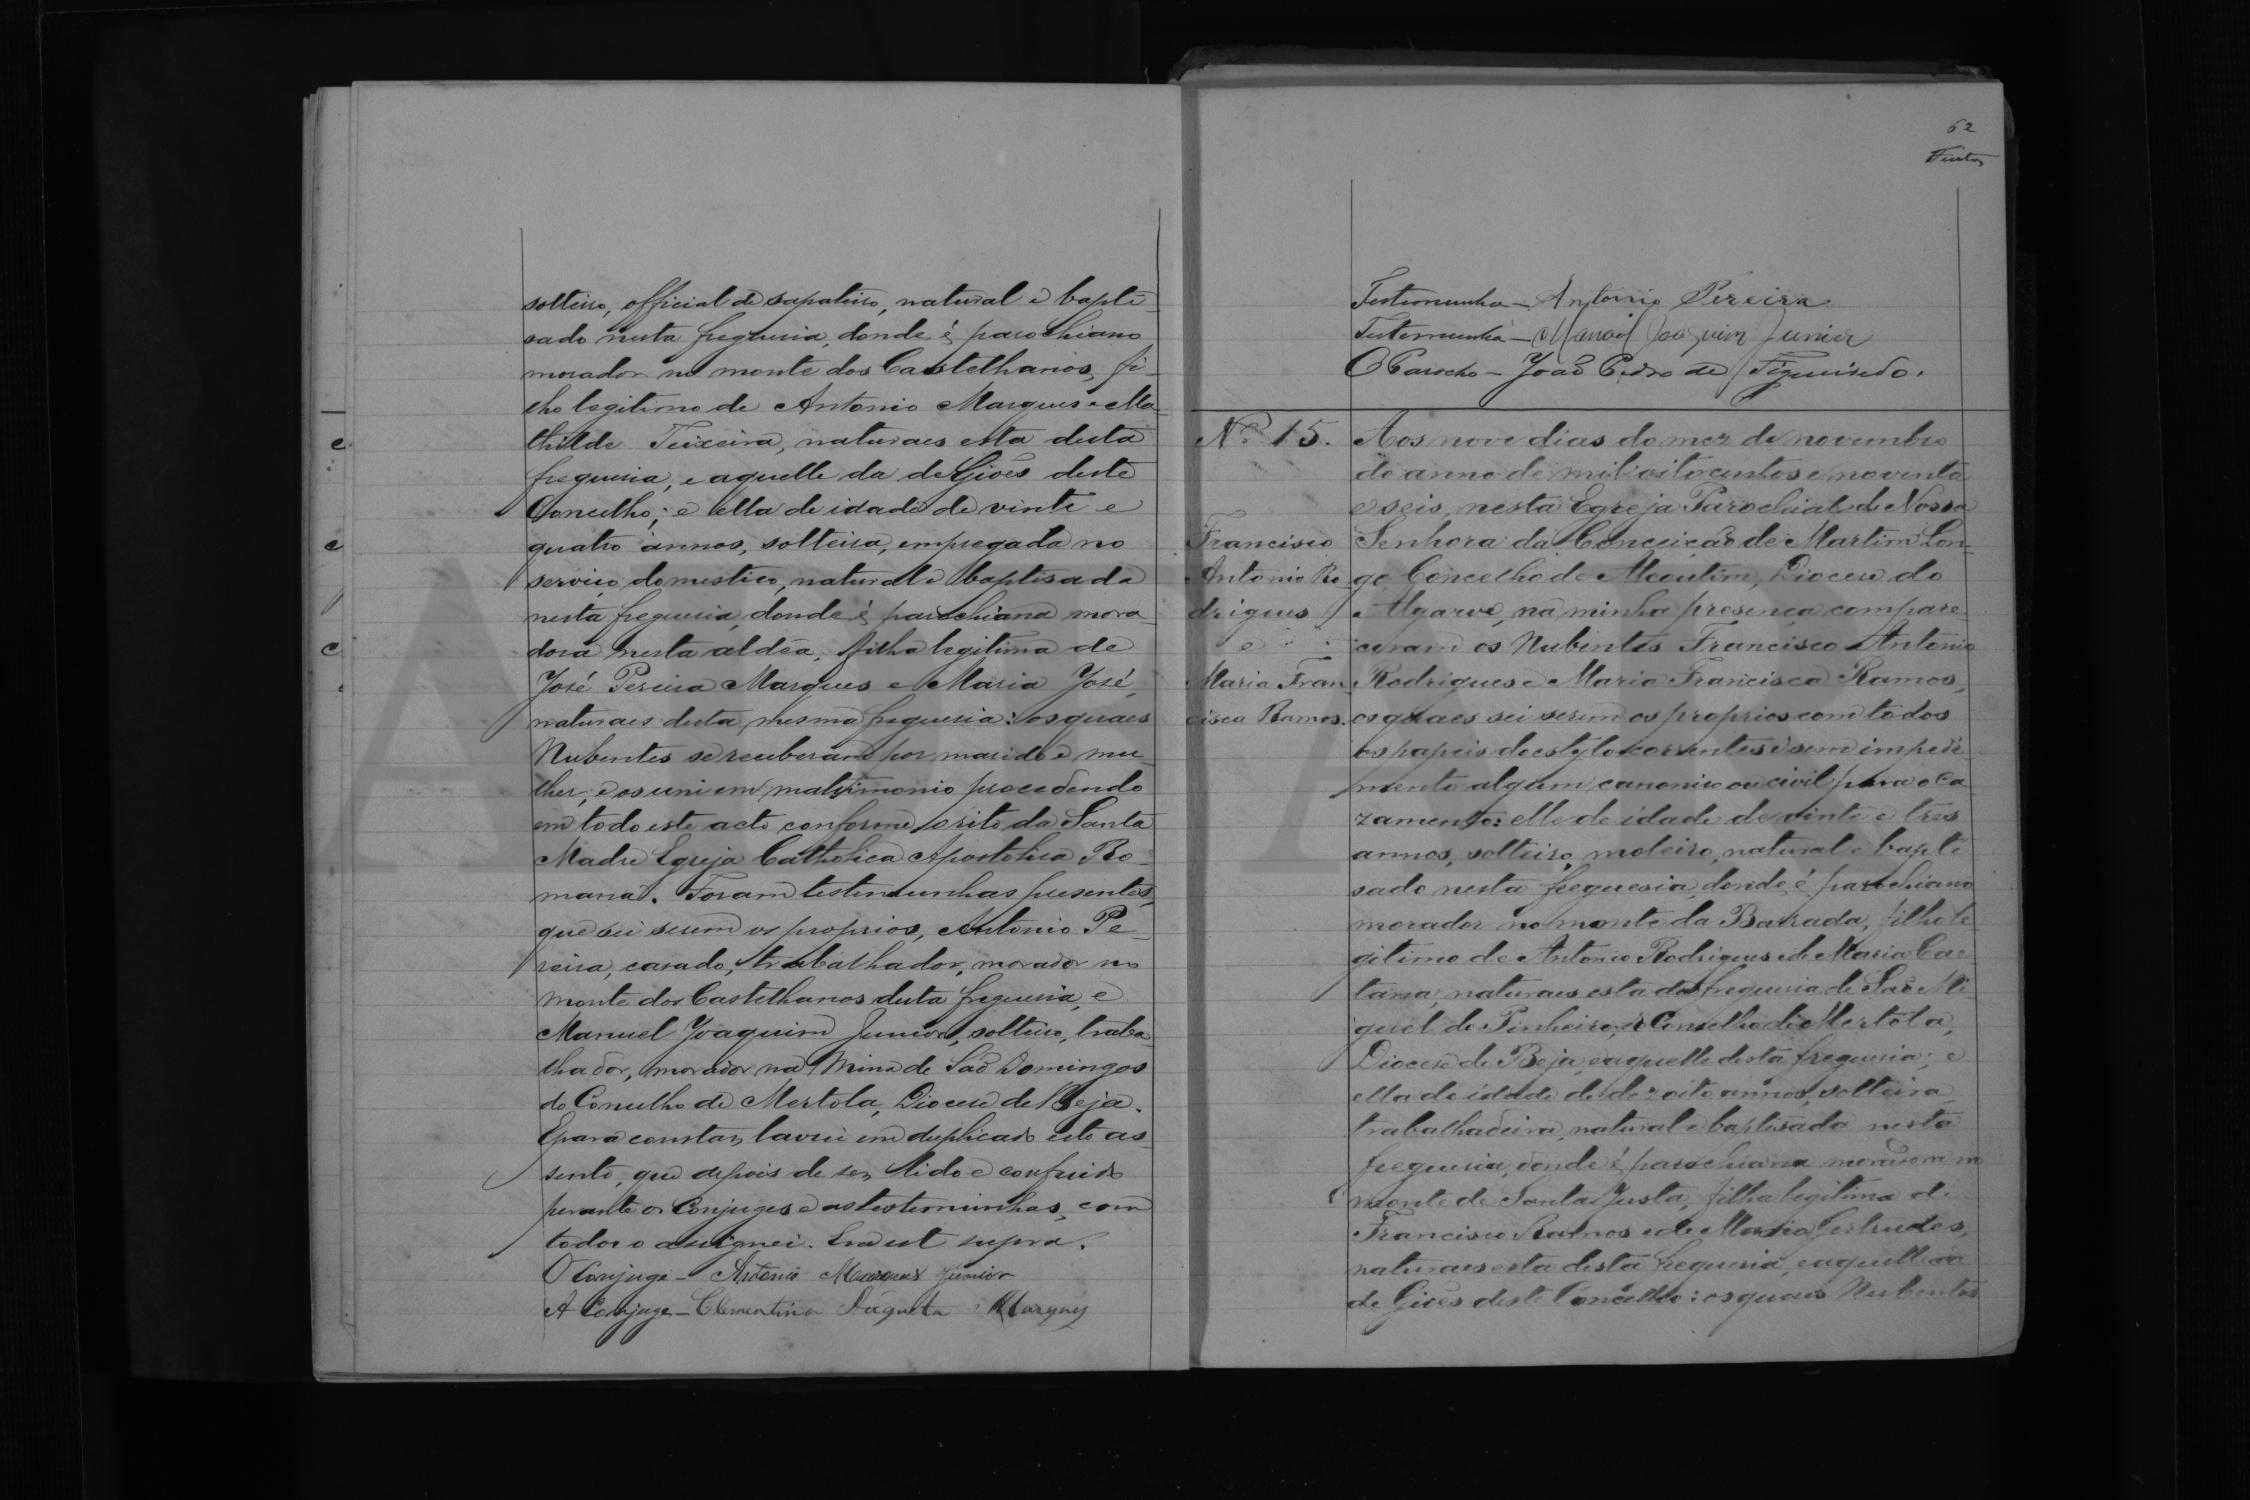 solteiro, official de sapateiro, natural e bapti-
sado nesta freguesia, donde é parochiano
morador no monte dos Castelhanos, fi-
lho legitimo de Antonio Marques e Ma-
thilde Teixeira, naturaes esta desta
freguesia, e aquelle da de Giões deste
Concelho; e ella de idade de vinte e
quatro annos, solteira, empregada no
serviço domestico, natural e baptisada
nesta freguesia, donde é parochiana mora-
dora nesta aldêa, filha legitima de
José Pereira Marques e Maria José,
naturaes desta mesma freguesia: os quaes
Nubentes se receberam por marido e mu-
lher, e os uni em matrimonio procedendo
em todo este acto conforme o rito da Santa
Madre Egreja Catholica Apostolica Ro-
mana. Foram testemunhas presentes,
que sei serem os proprios, Antonio Pe-
reira, casado, trabalhador, morador no
monte dos Castelhanos desta freguesia, e
Manuel Joaquim Junior, solteiro, traba-
lhador, morador na Mina de São Domingos
do Concelho de Mertola, Diocese de Beja.
E para constar, lavrei em duplicado este as-
sento, que depois de ser lido e conferido
perante os Conjuges e as testemunhas, com
todos o assignei. Era ut supra.
O Conjuge - Antonio Marques Junior
A Conjuge - Clementina Marques
62
Testemunha - Antonio Pereira
Testemunha - Manoel Joaquim Junior
O Parocho - João Pedro de Figueiredo.
Nº 15.
Francisco
Antonio Ro-
drigues
e
Maria Fran-
cisca Ramos.
Aos nove dias do mez de novembro
do anno de mil oitocentos e noventa
e seis, nesta Egreja Parochial de Nossa
Senhora da Conceição de Martim Lon-
go Concelho de Alcoutim, Diocese do
Algarve, na minha presença compare-
ceram os Nubentes Francisco Antonio
Rodrigues e Maria Francisca Ramos,
os quaes sei serem os proprios com todos
os papeis do estylo correntes e sem impedi-
mento algum canonico ou civil para o ca-
zamento: elle de idade de vinte e tres
annos, solteiro, moleiro, natural e bapti-
sado nesta freguesia, donde é parochiano
morador no monte da Barrada, filho le-
gitimo de Antonio Rodrigues e de Maria Cae-
tana, naturaes esta da freguesia de São Mi-
guel do Pinheiro, Concelho de Mertola,
Diocese de Beja, e aquelle desta freguesia; e
ella de idade de dezoito annos, solteira,
trabalhadeira, natural e baptisada nesta
freguesia, donde é parochiana moradora no
monte de Santa Justa, filha legitima de
Francisco Ramos e de Maria Gertrudes,
naturaes esta desta freguesia, e aquelle da
de Giões deste Concelho: os quaes Nubentes